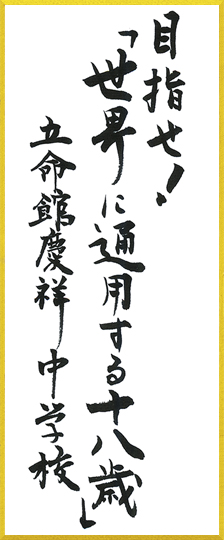 目指せ！
「世界に通用する十八歳」
立命館慶祥中学校